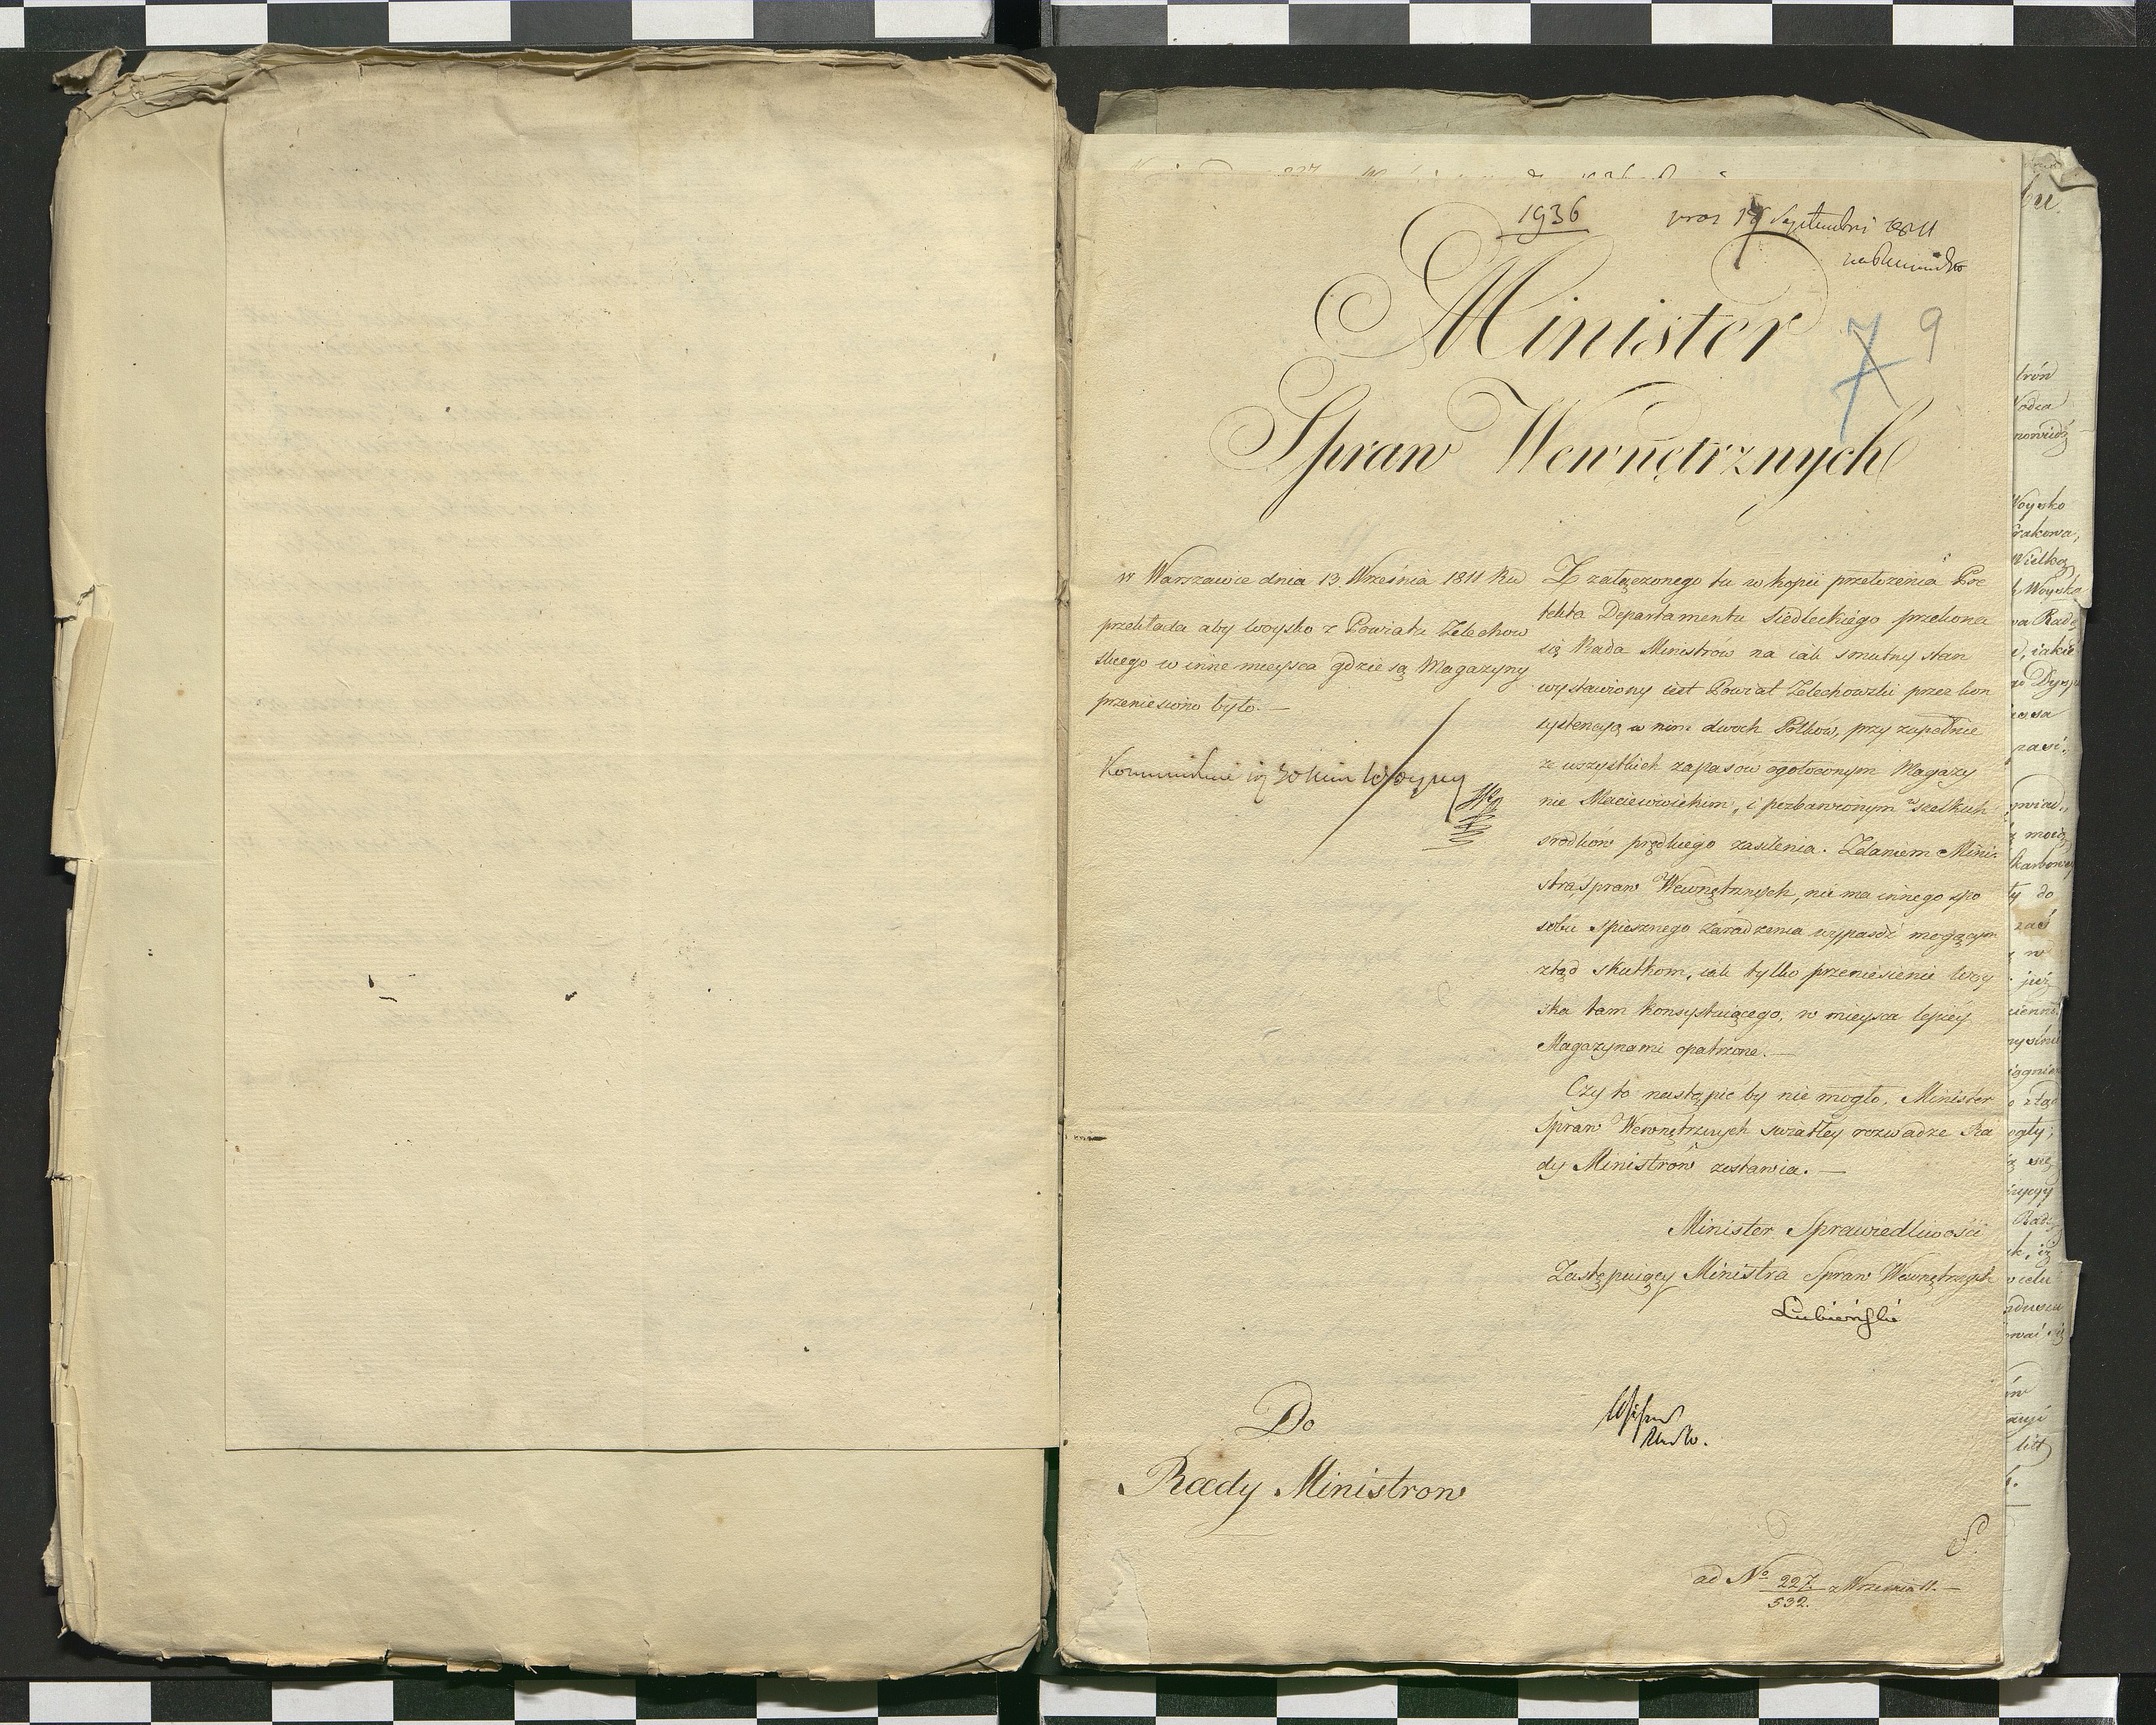 1936
pras 17 Septembri 1811
7 9
Minister
Spraw Wewnętrznych
w Warszawie dnia 13 Września 1811 Ru
przekłada aby woysko z Powiatu Zelechow
skiego w inne mieysca gdzie są Magazyny
przeniesiono było. —
Z załączonego tu w kopii przełożenia Pre
fekta Departamentu Siedleckiego przekona
się Rada Ministrów na iak smutny stan
wystawiony iest Powiat Zelechowski przez kon
systencyą w nim dwoch Półkow, przy zupełnie
ze wszystkich zapasow ogołoconym Magazy
nie Macieiowickim, i pozbawionym wszelkich
srodków prędkiego zasilenia. Zdaniem Mini
stra Spraw Wewnętrznych, nie ma innego spo
sobu spiesznego zaradzenia wypaść mogącym
ztąd skutkom, iak tylko przeniesienie woy
ska tam konsystuiącego, w mieysca lepiey
Magazynami opatrzone. —
Czy to nastąpić by nie mogło, Minister
Spraw Wewnętrznych swiatłey rozwadze Ra
dy Ministrow zostawia. —
Minister Sprawiedliwości
Zastępuiący Ministra Spraw Wewnętrznych
Łubieński
Do
Rady Ministrow
ad No 227. z Września 11. —
532.